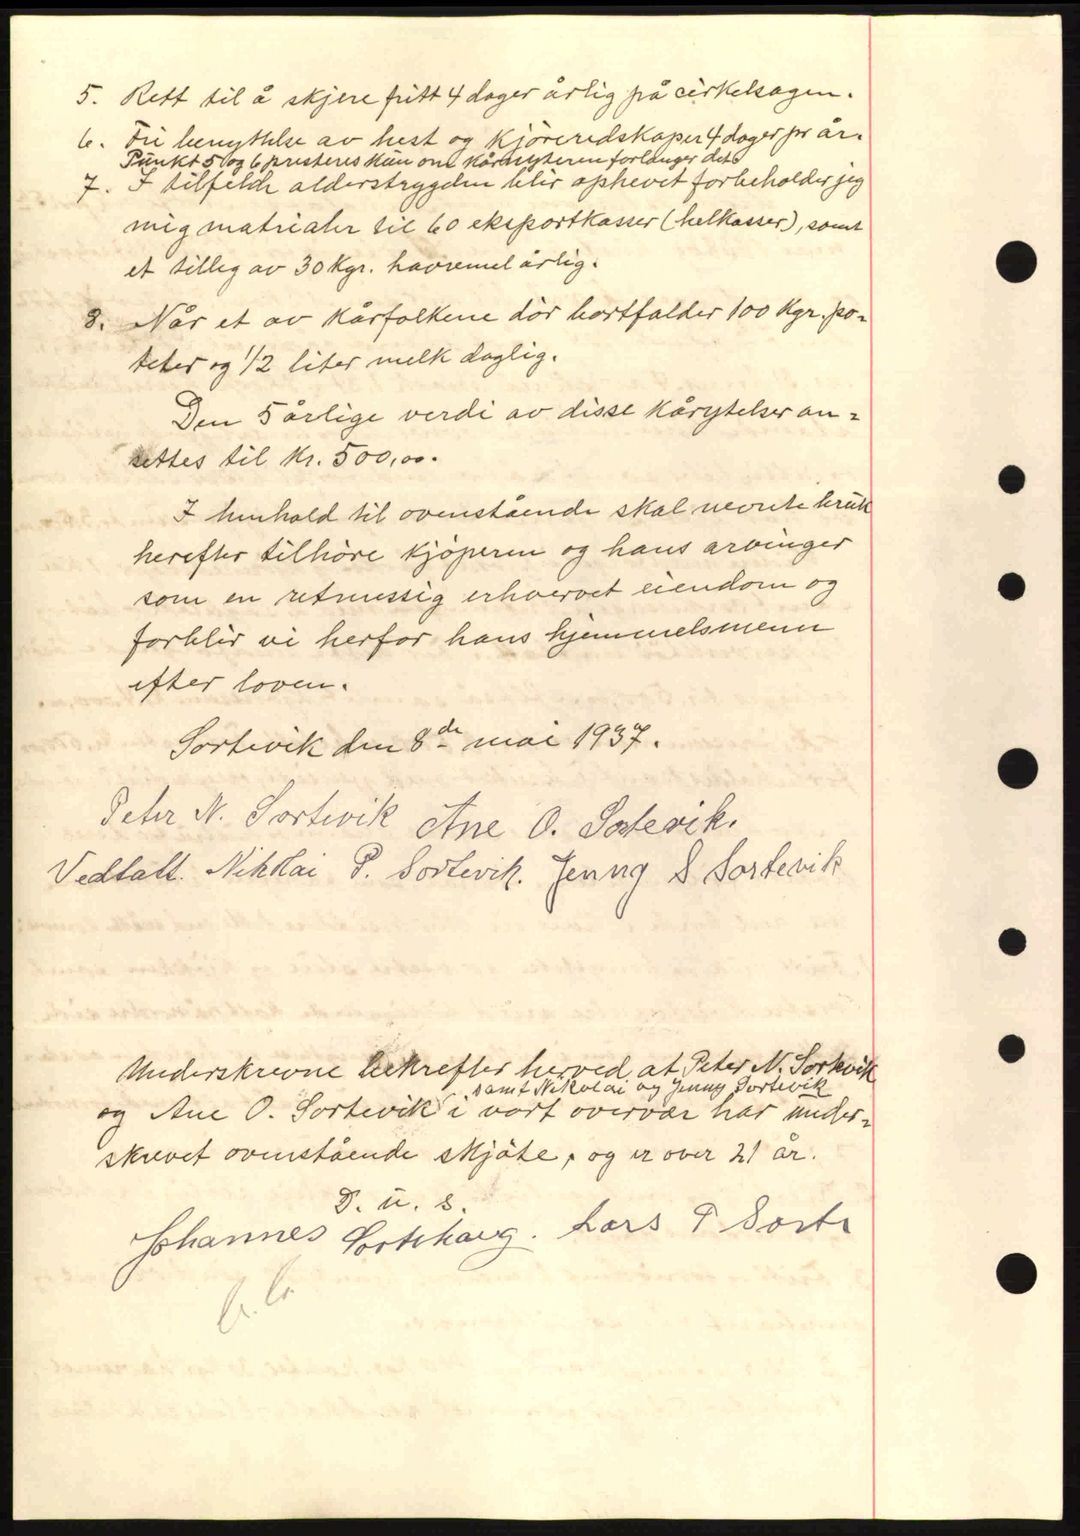 5. Rett til å skjere fritt 4 dager årlig på cirkelsagen.
6. Fri benyttelse av hest og kjøreredskaper 4 dager pr år.
Punkt 5 og 6 presteres kun om kårnyteren forlanger det.
7. I tilfelde alderstrygden blir ophevet forbeholder jeg
mig matrialer til 60 eksportkasser (helkasser), samt
et tilleg av 30 Kgr. havremel årlig.
8. Når et av kårfolkene dör bortfalder 100 Kgr. po-
teter og 1/2 liter melk daglig.
Den 5 årlige verdi av disse kårytelser an-
settes til Kr. 500,00.
I henhold til ovenstående skal nevnte bruk
herefter tilhöre kjöperen og hans arvinger
som en retmessig erhvervet eiendom og
forblir vi herfor hans hjemmelsmenn
efter loven.
Sortevik den 8de mai 1937.
Peter N. Sortevik Ane O. Sotevik.
Vedtatt. Nikolai P. Sortevik. Jenny S Sortevik
Underskrevne bekrefter herved at Peter N. Sortevik
samt Nikolai og Jenny Sortevik
og Ane O. Sortevik i vort overvær har under-
skrevet ovenstående skjöte, og er over 21 år.
D. u. s.
Johannes Sortehaug. Lars P Sorte